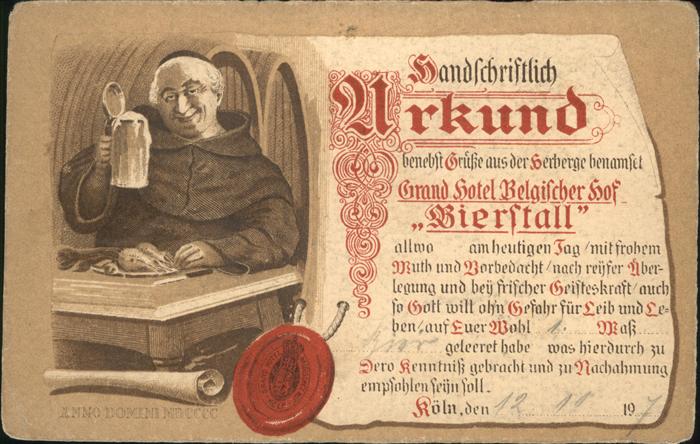 Handschriftlich
Urkund
benebst Grüße aus der Herberge benamset
Grand Hotel Belgischer Hof
„Bierstall"
allwo am heutigen Tag / mit frohem
Muth und Vorbedacht / nach reifer Über-
legung und bey frischer Geisteskraft / auch
so Gott will ohn Gefahr für Leib und Le-
ben / auf Euer Wohl 1. Maß
Bier geleeret habe was hierdurch zu
Dero Kenntniß gebracht und zu Nachahmung
empfohlen seyn soll.
Köln, den 12 11 1907
ANNO DOMINI MDCCCC